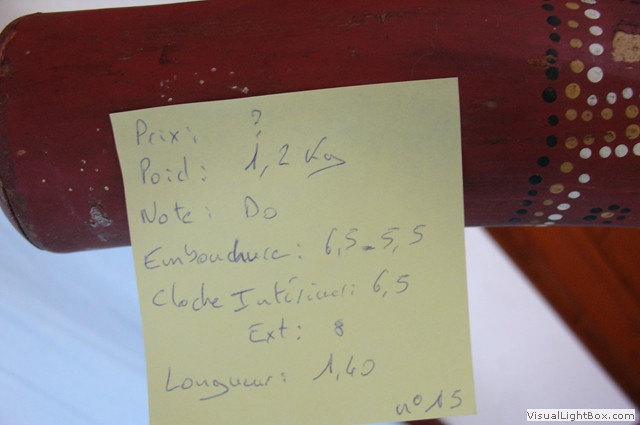 Prix: ?
Poid: 1,2 Kg
Note: Do
Embouchure: 6,5 - 5,5
Cloche Intérieur: 6,5
Ext: 8
Longueur: 1,40
n° 15
VisualLightBox.com